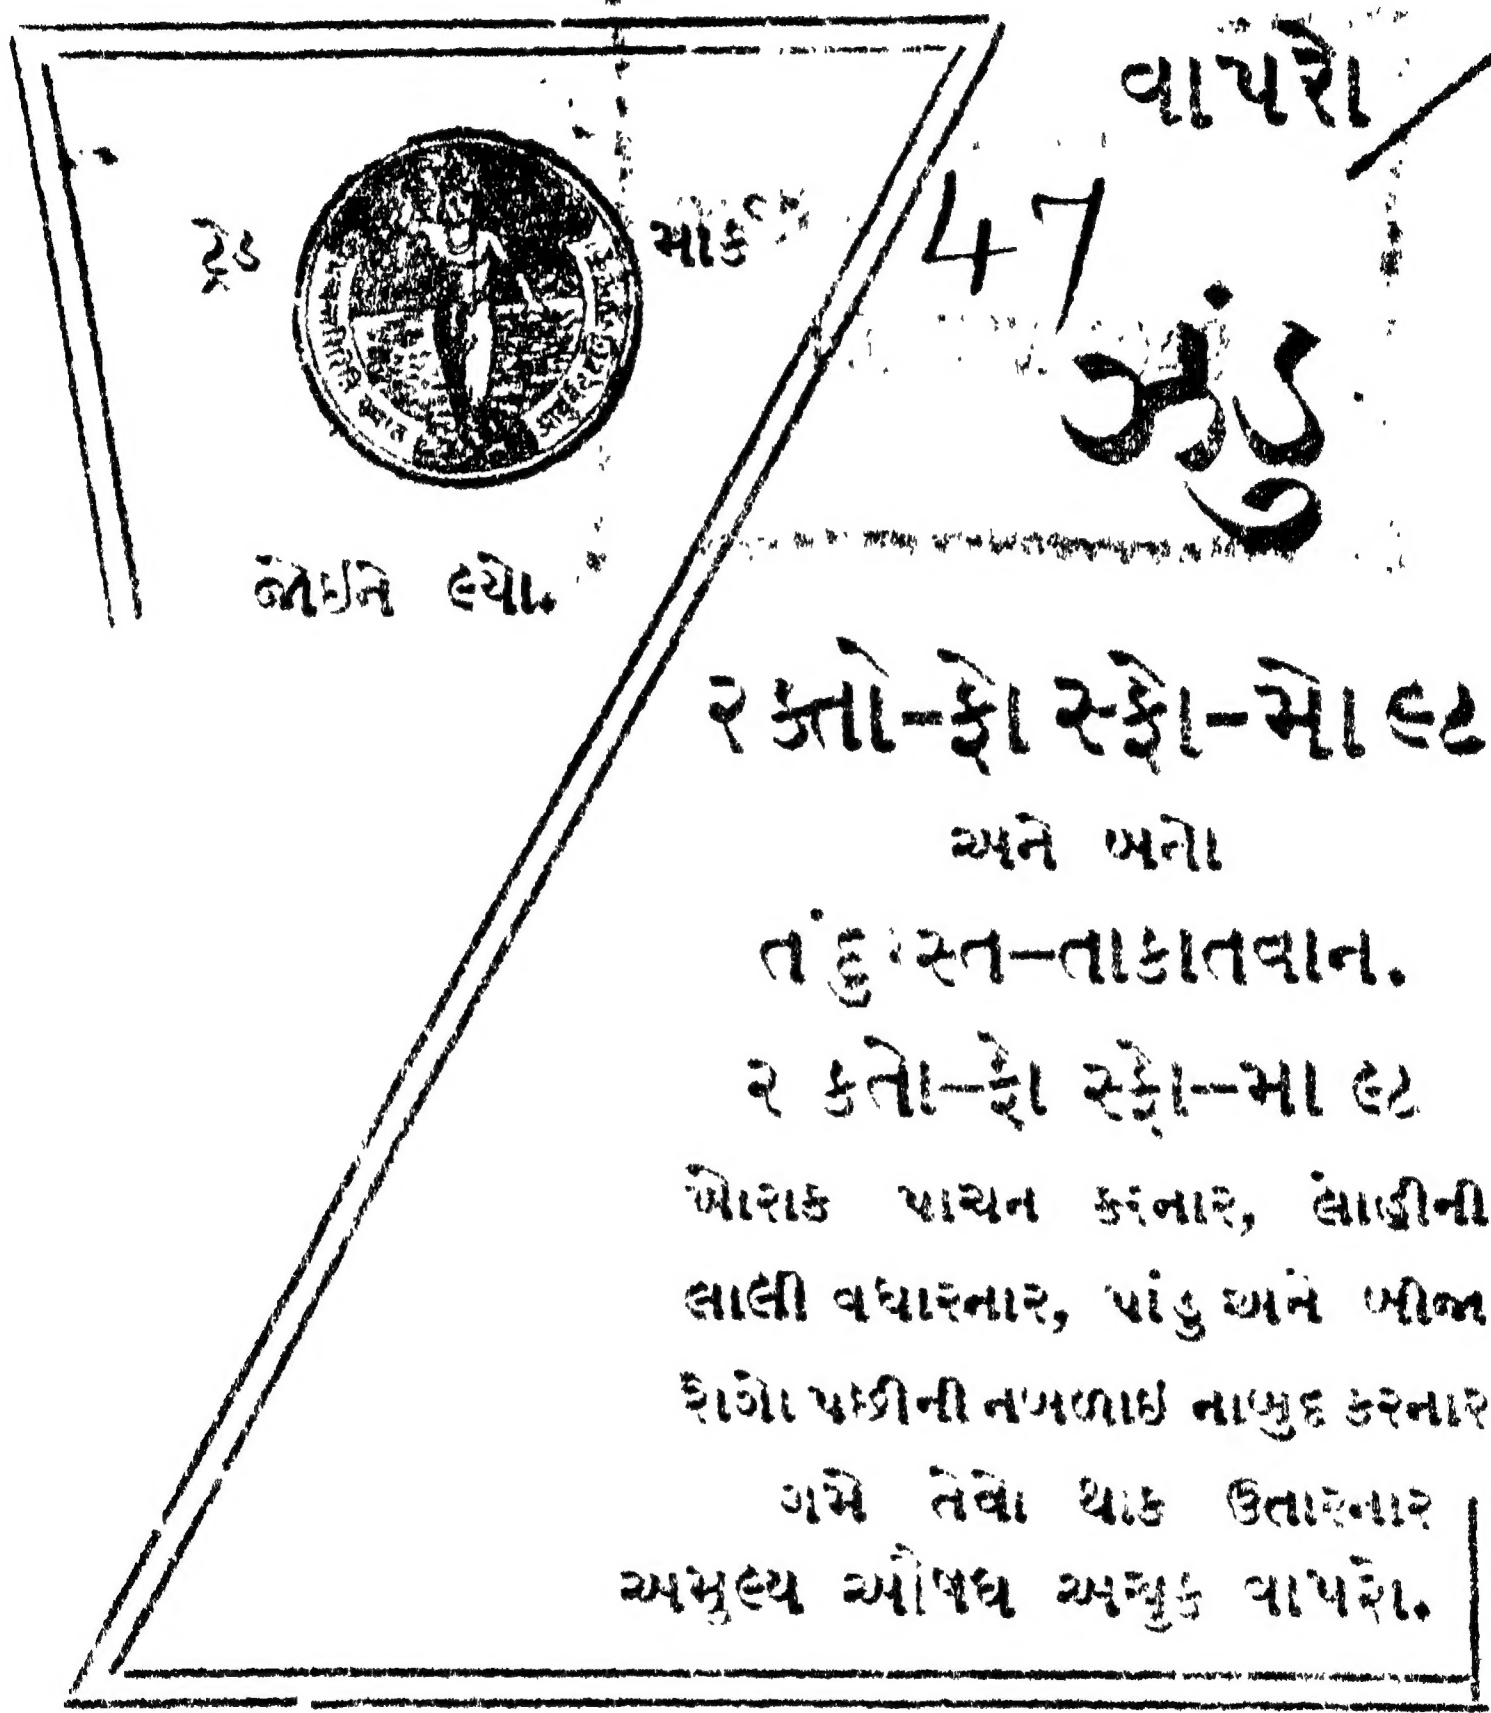 વાપરો
47
ટ્રેડ માર્ક
ઝંડુ
જોઇને લ્યો.
રક્તો-ફોસ્ફો-મોલ્ટ
અને બનો
તંદુરસ્ત-તાકાતવાન.
રકતો-ફોસ્ફો-માલ્ટ
ખોરાક પાચન કરનાર, લોહીની
લાલી વધારનાર, પાંડુ અને બીજા
રોગો પછીની નબળાઇ નાબુદ કરનાર
ગમે તેવો થાક ઉતારનાર
અમુલ્ય ઔષધ અચુક વાપરો.